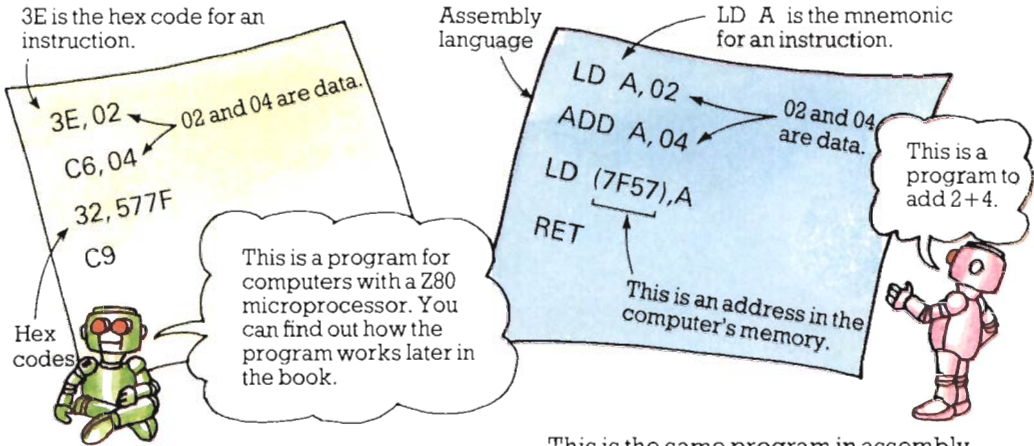 3E is the hex code for an
instruction.
3E, 02
02 and 04 are data.
C6, 04
32, 577F
C9
Hex
codes
This is a program for
computers with a Z80
microprocessor. You
can find out how the
program works later in
the book.
Assembly
language
LD A is the mnemonic
for an instruction.
LD A, 02
02 and 04
are data.
ADD A, 04
LD (7F57),A
RET
This is an address in the
computer's memory.
This is a
program to
add 2+4.
This is the same program in assembly